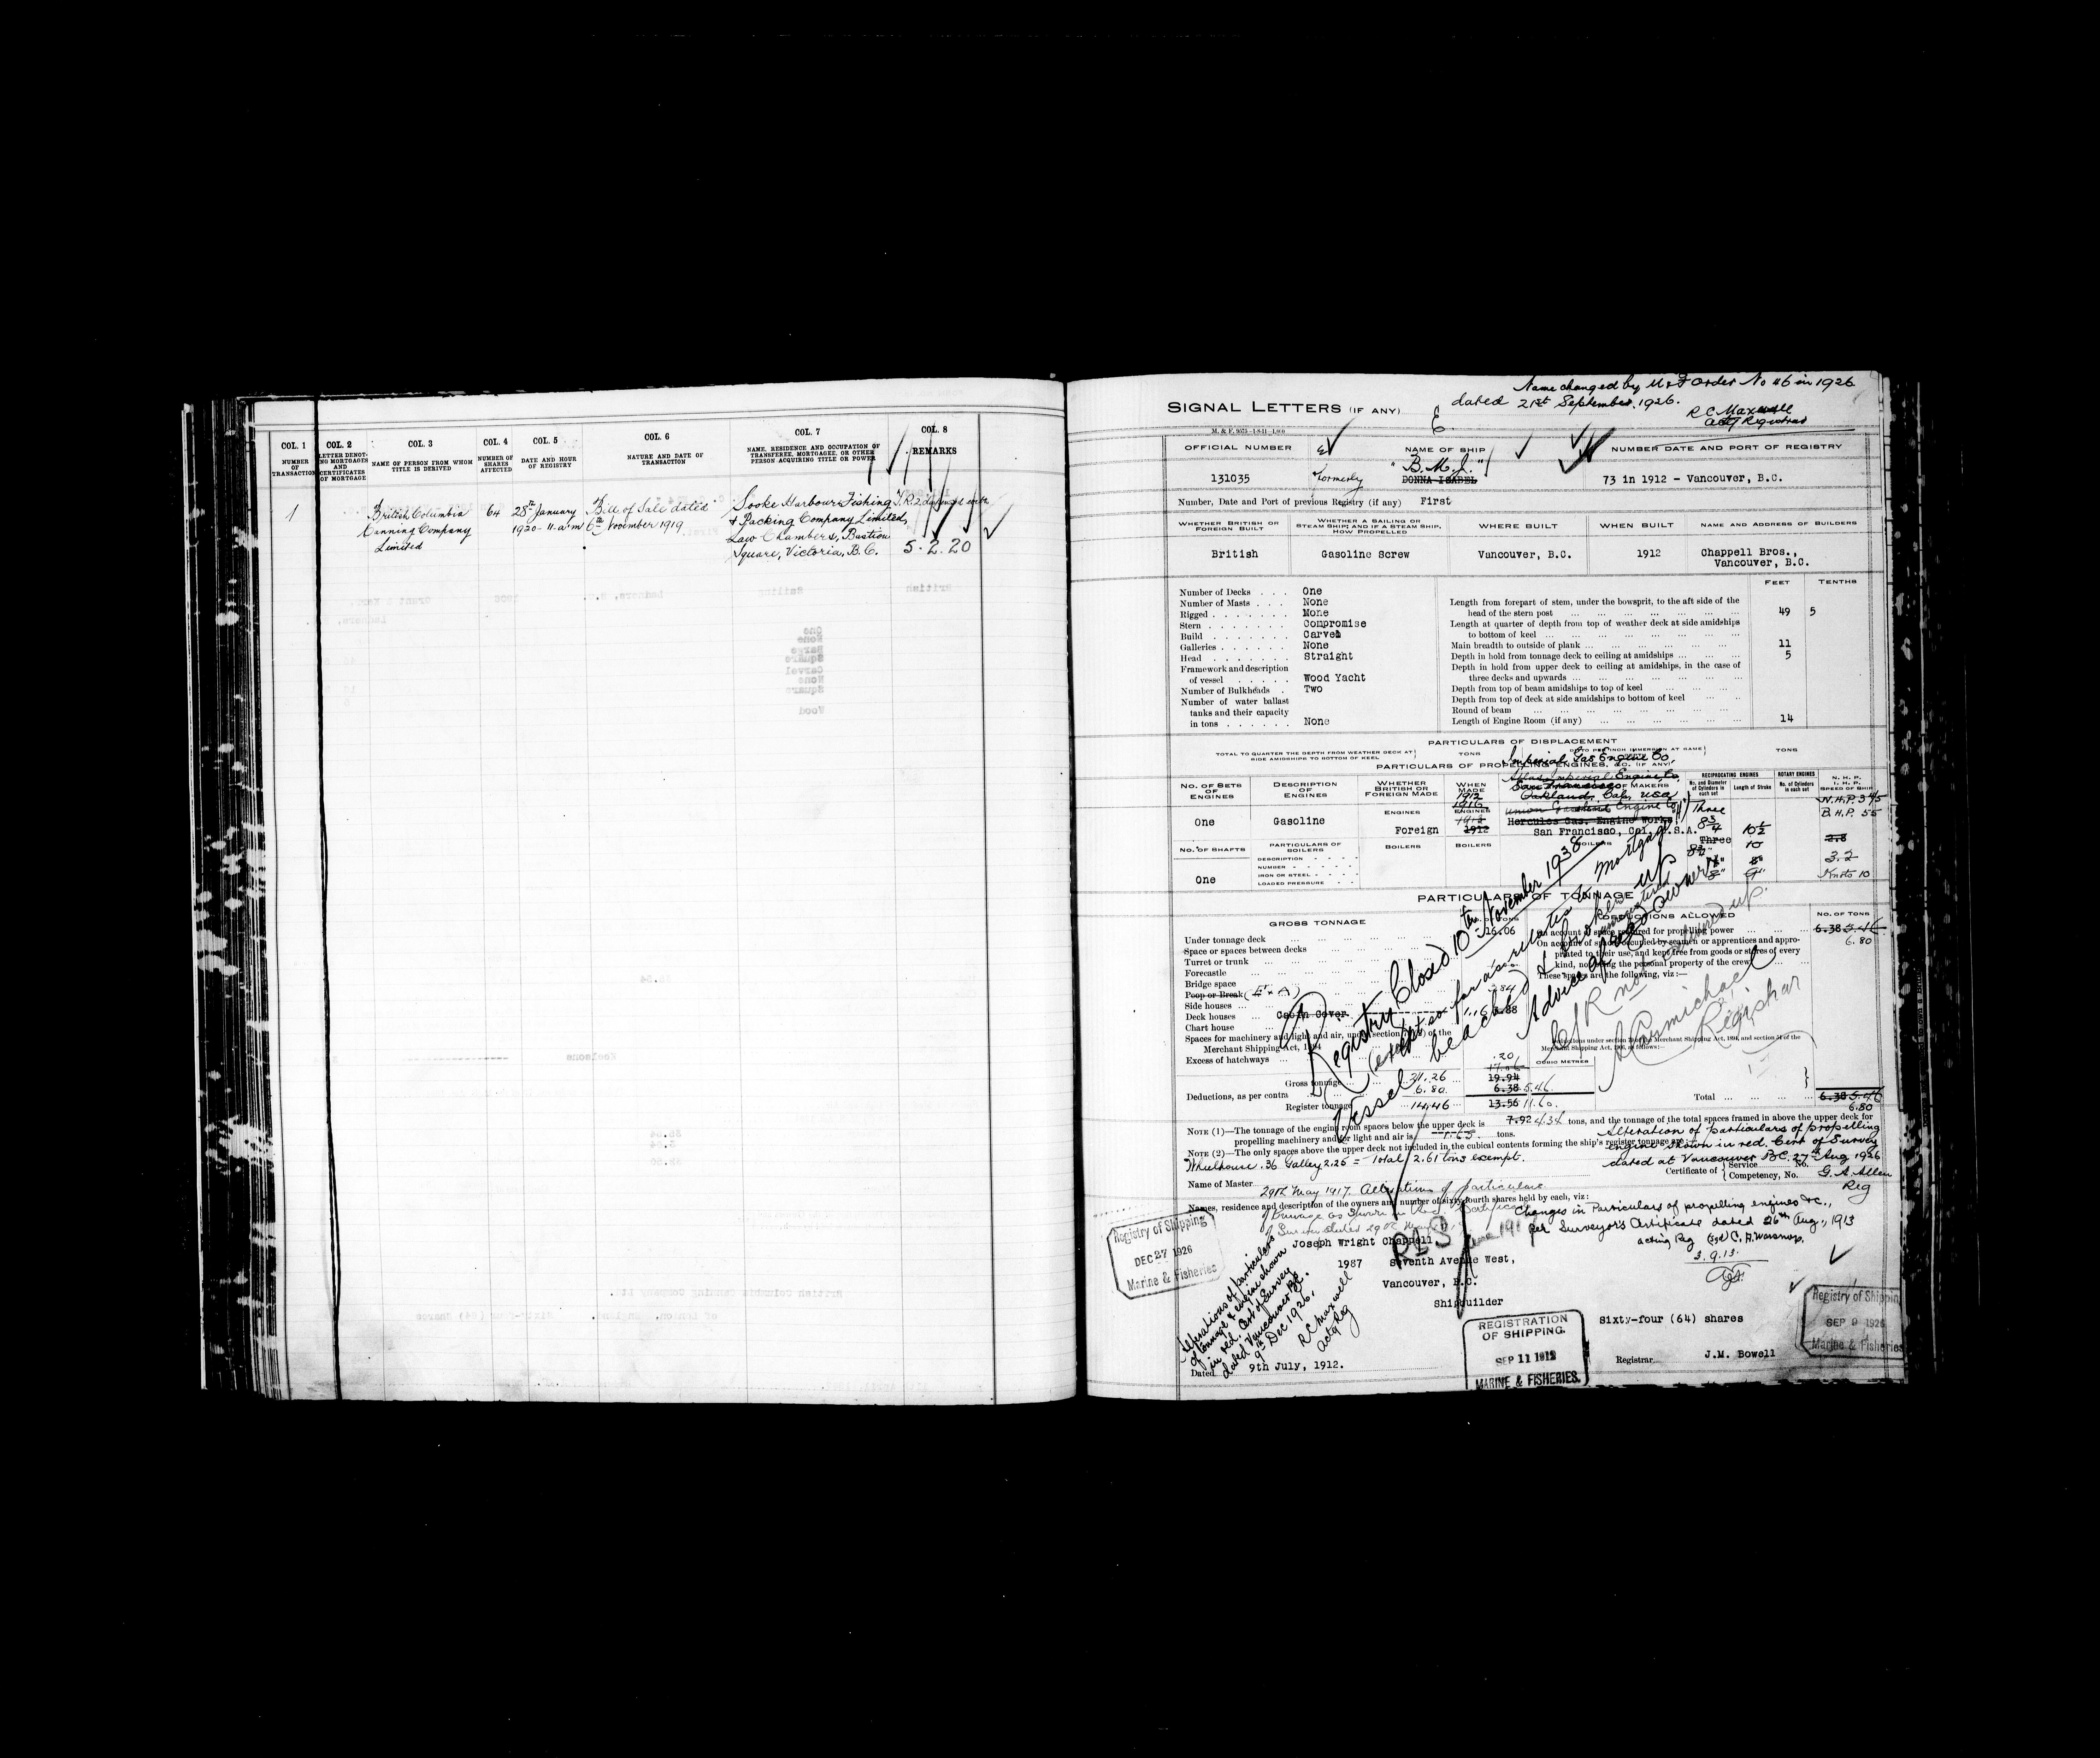 COL. 1
NUMBER OF TRANSACTION
COL. 2
LETTER DENOTING MORTGAGES AND CERTIFICATES OF MORTGAGE
COL. 3
NAME OF PERSON FROM WHOM TITLE IS DERIVED
COL. 4
NUMBER OF SHARES AFFECTED
COL. 5
DATE AND HOUR OF REGISTRY
COL. 6
NATURE AND DATE OF TRANSACTION
COL. 7
NAME, RESIDENCE AND OCCUPATION OF TRANSFEREE, MORTGAGEE, OR OTHER PERSON ACQUIRING TITLE OR POWER
COL. 8
REMARKS
1
British Columbia
Canning Company
Limited
64
28th January
1920 - 11 a.m
Bill of Sale dated
6th November 1919
Sooke Harbour Fishing
& Packing Company Limited,
Law Chambers, Bastion
Square, Victoria, B.C.
5.2.20
Name changed by M & F Order No 46 in 1926
dated 21st September, 1926.
R C Maxwell
Actg Registrar
SIGNAL LETTERS (IF ANY)
OFFICIAL NUMBER
NAME OF SHIP
NUMBER DATE AND PORT OF REGISTRY
131035
Formerly
"B.M.J."
DONNA ISABEL
73 in 1912 - Vancouver, B.C.
Number, Date and Port of previous Registry (if any) First
WHETHER BRITISH OR FOREIGN BUILT
WHETHER A SAILING OR STEAM SHIP; AND IF A STEAM SHIP, HOW PROPELLED
WHERE BUILT
WHEN BUILT
NAME AND ADDRESS OF BUILDERS
British
Gasoline Screw
Vancouver, B.C.
1912
Chappell Bros.,
Vancouver, B.C.
FEET
TENTHS
Number of Decks One
Number of Masts None
Rigged None
Stern Compromise
Build Carvel
Galleries None
Head Straight
Framework and description
of vessel Wood Yacht
Number of Bulkheads Two
Number of water ballast
tanks and their capacity
in tons None
Length from forepart of stem, under the bowsprit, to the aft side of the
head of the stern post 49 5
Length at quarter of depth from top of weather deck at side amidships
to bottom of keel
Main breadth to outside of plank 11
Depth in hold from tonnage deck to ceiling at amidships 5
Depth in hold from upper deck to ceiling at amidships, in the case of
three decks and upwards
Depth from top of beam amidships to top of keel
Depth from top of deck at side amidships to bottom of keel
Round of beam
Length of Engine Room (if any) 14
PARTICULARS OF DISPLACEMENT
TOTAL TO QUARTER THE DEPTH FROM WEATHER DECK AT SIDE AMIDSHIPS TO BOTTOM OF KEEL
TONS
TONS
Imperial Gas Engine Co.
PARTICULARS OF PROPELLING ENGINES, &C. (IF ANY)
No. OF SETS OF ENGINES
DESCRIPTION OF ENGINES
WHETHER BRITISH OR FOREIGN MADE
WHEN MADE
RECIPROCATING ENGINES
ROTARY ENGINES
Oakland, Cal, USA
One
Gasoline
ENGINES
Foreign
1912
Hercules Gas. Engine Works,
San Francisco, Cal, U.S.A.
Three
10½
B.H.P. 55
No. OF SHAFTS
PARTICULARS OF BOILERS
BOILERS
BOILERS
DESCRIPTION
NUMBER
IRON OR STEEL
LOADED PRESSURE
One
Three
10
2.8
3.2
Knots 10
PARTICULARS OF TONNAGE
GROSS TONNAGE
DEDUCTIONS ALLOWED
No. OF TONS
Under tonnage deck 16.06
Space or spaces between decks
Turret or trunk
Forecastle
Bridge space
Poop or Break
Side houses
Deck houses Cabin Cover
Chart house
Spaces for machinery and light and air, under section
Merchant Shipping Act, 1894
Excess of hatchways .20
Gross tonnage 21.26 19.94
Deductions, as per contra 6.80 6.38 5.46
Register tonnage 14.46 13.56 11.60
On account of space required for propelling power 6.38 5.46
6.80
On account of spaces occupied by seamen or apprentices and appropriated
to their use, and kept free from goods or stores of every
kind, not being the personal property of the crew
These spaces are the following, viz:—
CUBIC METRES
Total 6.38 5.46
6.80
Registry Closed 10th November 1938
(except so far as relates to mortgage)
Vessel beached & broken up
Advice of Reg'd Owner
C of R not surrendered up.
A Carmichael
Registrar
NOTE (1)—The tonnage of the engine room spaces below the upper deck is 7.92 4.34 tons, and the tonnage of the total spaces framed in above the upper deck for
propelling machinery and for light and air is tons.
NOTE (2)—The only spaces above the upper deck not included in the cubical contents forming the ship's register tonnage are:—
Wheelhouse .36 Galley 2.25 = Total 2.61 tons exempt.
Alteration of particulars of propelling
engine shown in red. Cert of Survey
dated at Vancouver BC. 27th Aug 1926
G. A. Allen
Reg
Certificate of Service No.
Competency, No.
Name of Master
29th May 1917. Alteration of particulars
Names, residence and description of the owners and number of sixty-fourth shares held by each, viz:
Changes in Particulars of propelling engines &c.,
per Surveyor's Certificate dated 26th Aug., 1913
acting Reg (sgd) C. A. Warsnop.
3.9.13.
Joseph Wright Chappell,
1987 Seventh Avenue West,
Vancouver, B.C.
Shipbuilder
Sixty-four (64) shares
Registry of Shipping
DEC 27 1926
Marine & Fisheries
Alterations of particulars
of tonnage & engine shown
in red. Cert of Survey
dated Vancouver BC.
9th Dec 1926.
R C Maxwell
Actg Reg
REGISTRATION
OF SHIPPING.
SEP 11 1912
MARINE & FISHERIES.
Registry of Shipping
SEP 9 1926
Marine & Fisheries
Dated 9th July, 1912.
Registrar, J.M. Bowell